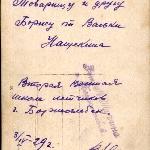 Товарищу и другу
Борису от Васьки
Нащекина
Вторая военная
школа летчиков
г. Борисоглебск
3/IV-29 г.